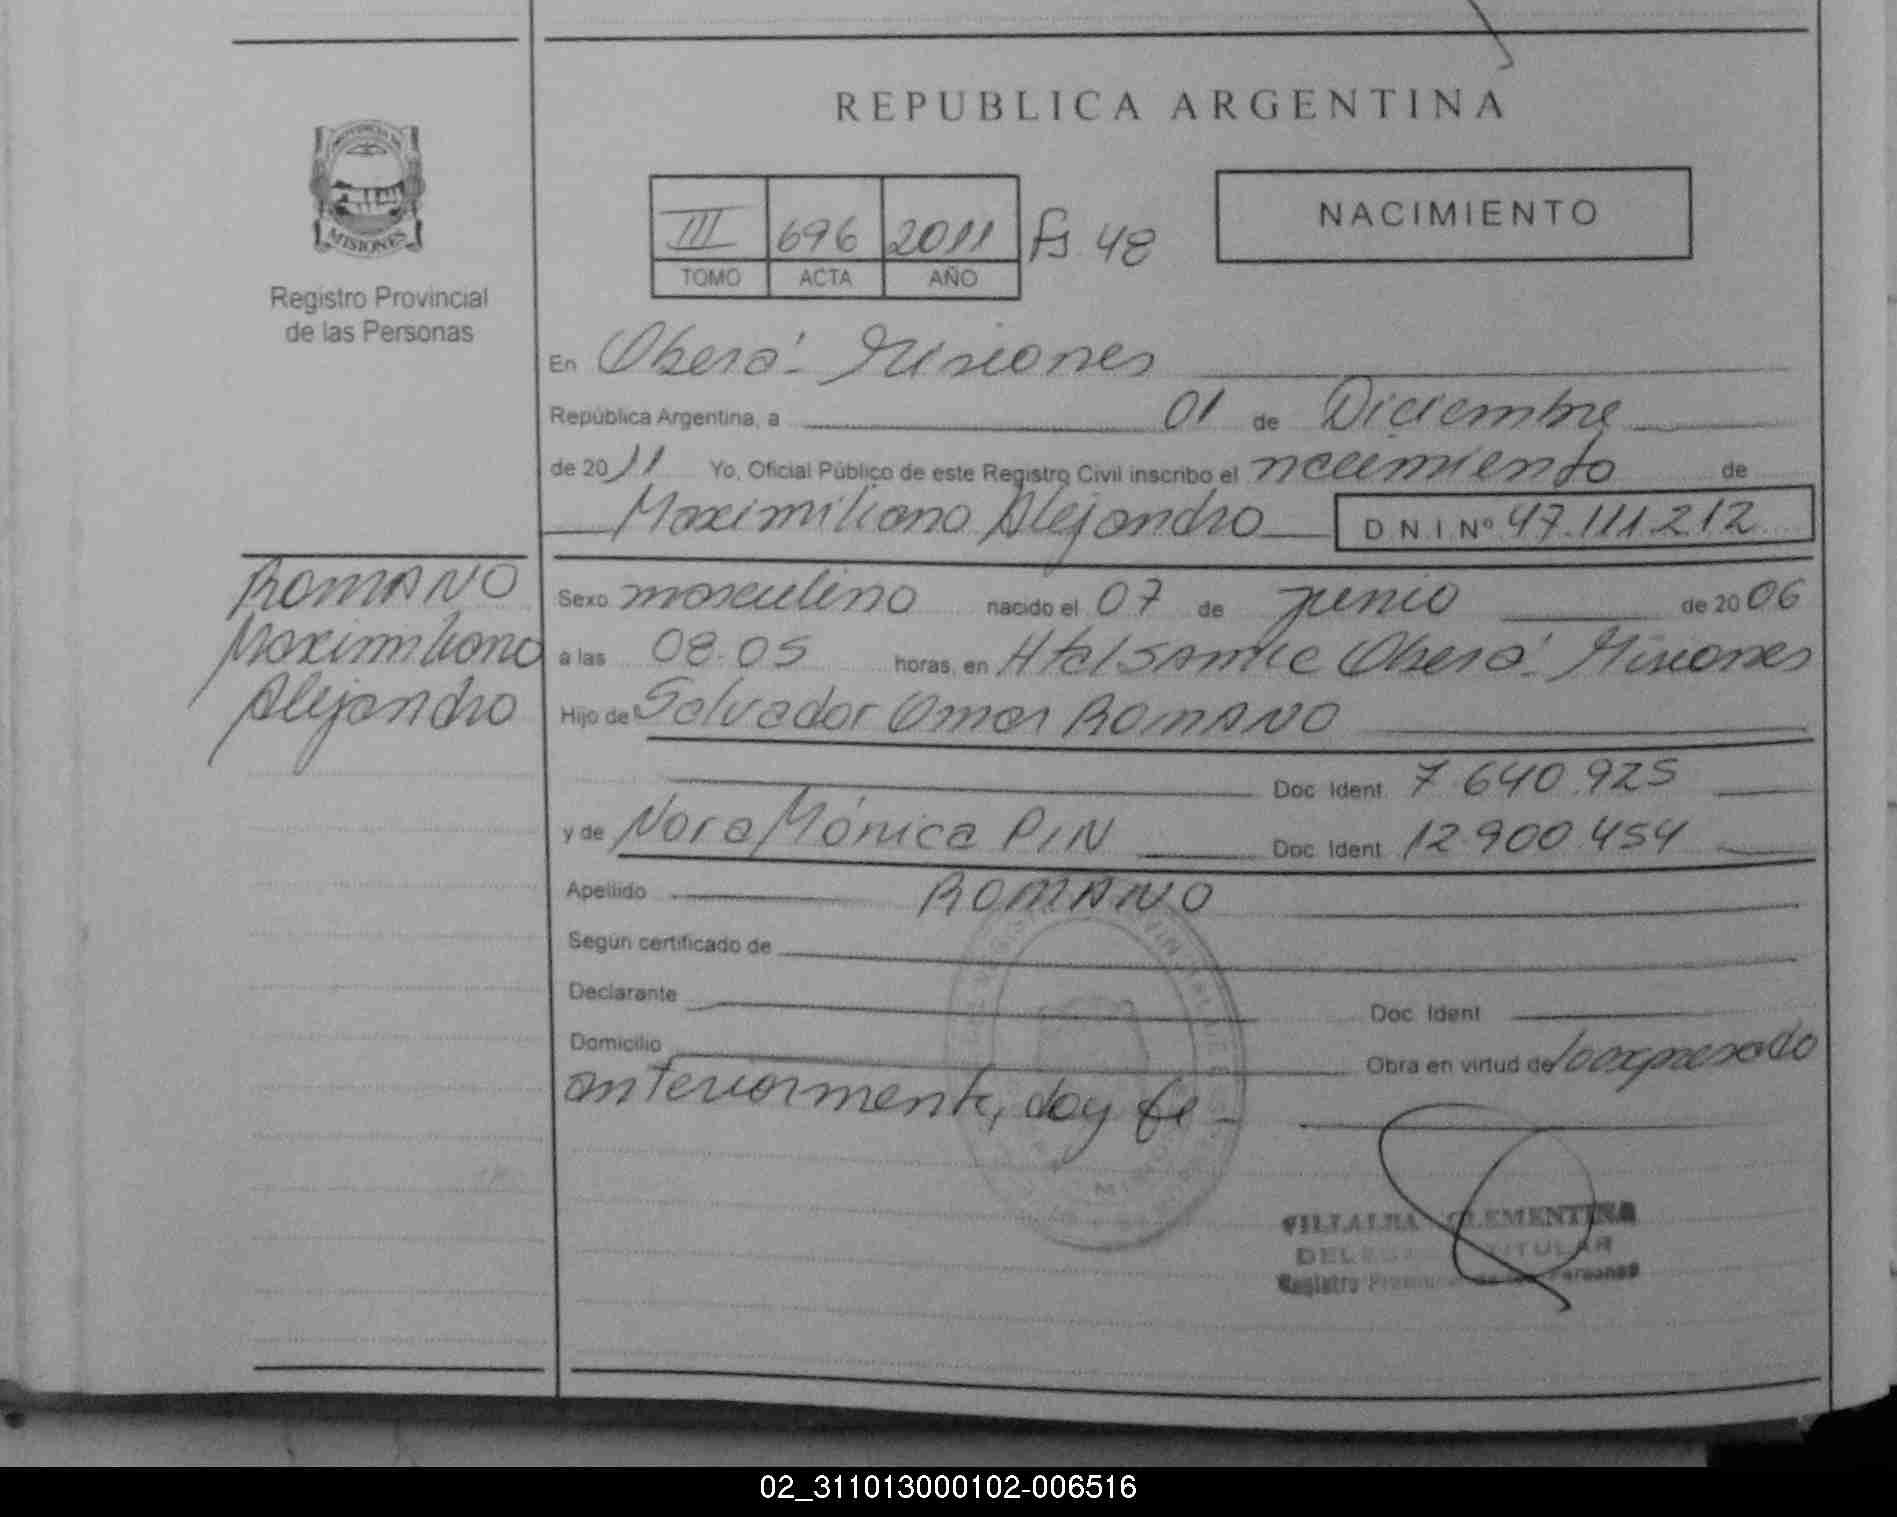 REPUBLICA ARGENTINA
NACIMIENTO
III 696 2011 fs 48
TOMO ACTA AÑO
MISIONES
Registro Provincial
de las Personas
En Oberá - Misiones
República Argentina, a 01 de Diciembre
de 2011 Yo, Oficial Público de este Registro Civil inscribo el nacimiento de
Maximiliano Alejandro D.N.I.Nº 47.111.212
ROMANO
Maximiliano
Alejandro
Sexo masculino nacido el 07 de junio de 2006
a las 08.05 horas, en Oberá - Misiones
Hijo de Salvador Omar ROMANO
Doc Ident. 7.640.925
y de Nora Mónica PIN Doc Ident 12.900.454
Apellido ROMANO
Según certificado de
Declarante Doc. Ident
Domicilio Obra en virtud de lo expresado
anteriormente, doy fe
VILLALBA CLEMENTINA
TITULAR
Registro Personas
02_311013000102-006516